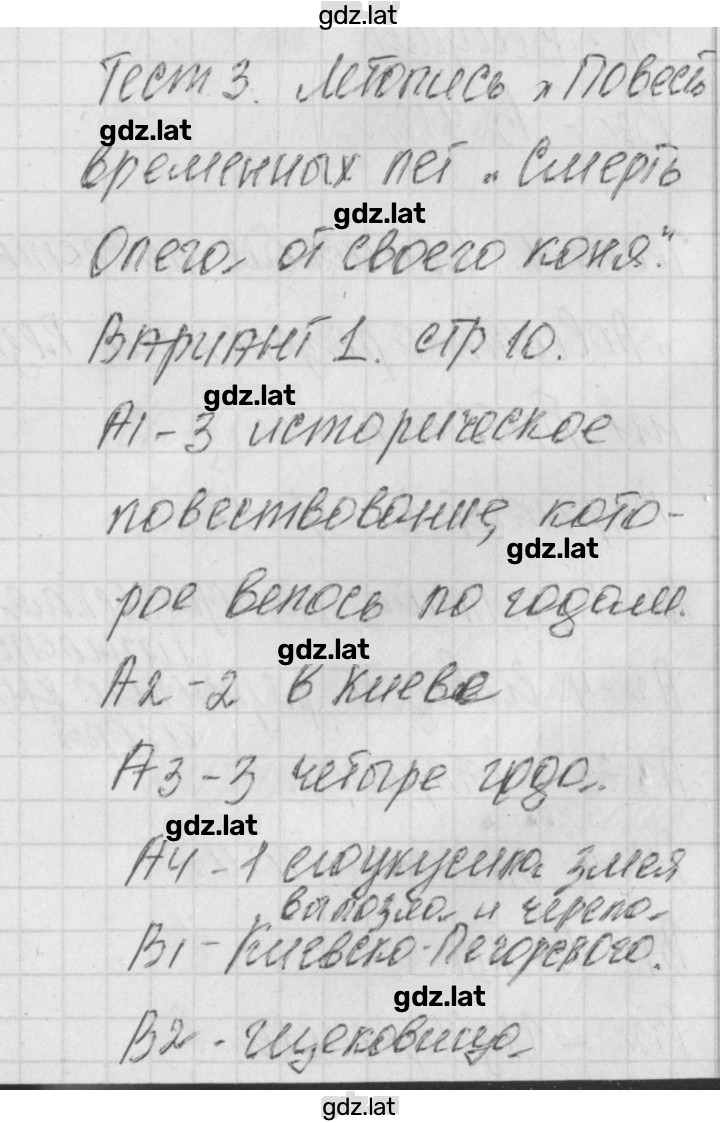 gdz.lat
Тест 3. Летопись "Повесть
gdz.lat
временных лет". "Смерть
gdz.lat
Олега от своего коня".
Вариант 1. стр 10.
gdz.lat
А1 - 3 историческое
повествование, кото-
gdz.lat
рое велось по годам.
gdz.lat
А2 - 2 в Киеве
А3 - 3 четыре года.
gdz.lat
А4 - 1 его укусила змея
выползла и черепа
В1 - Киевско-Печорского.
gdz.lat
В2 - щековица
gdz.lat